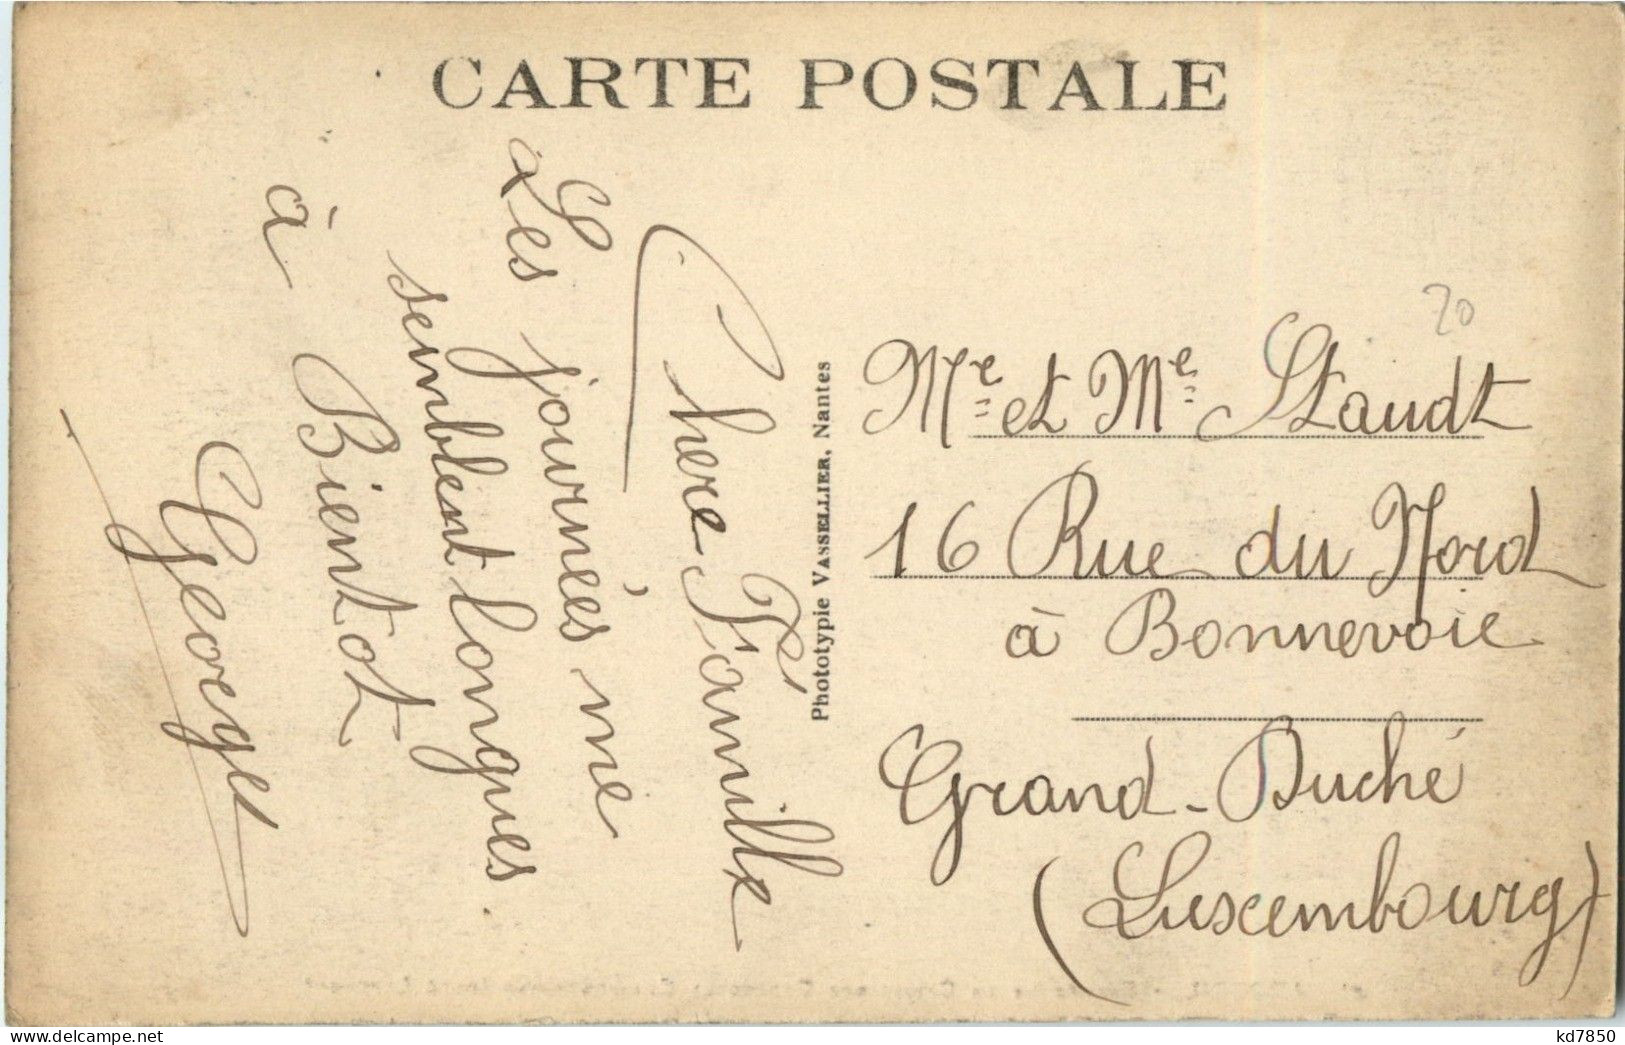 CARTE POSTALE
Chère Famille
Les journées me
semblent longues.
à Bientot
Georget
Phototypie VASSELLIER, Nantes
20
Mr et Me Staudt
16 Rue du Nord
à Bonnevoie
Grand-Duché
(Luxembourg)
kd7850